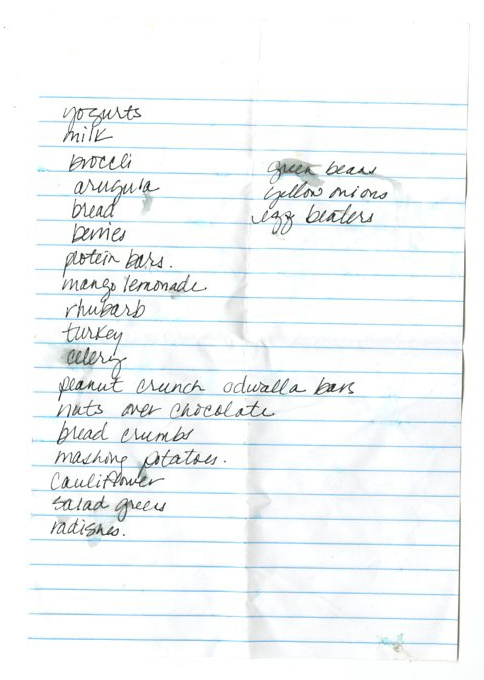 yogurts
milk
broccli
arugula
bread
berries
protein bars.
mango lemonade
rhubarb
turkey
celery
peanut crunch odwalla bars
nuts over chocolate
bread crumbs
mashing potatoes.
cauliflower
salad greens
radishes.
green beans
yellow onions
egg beaters